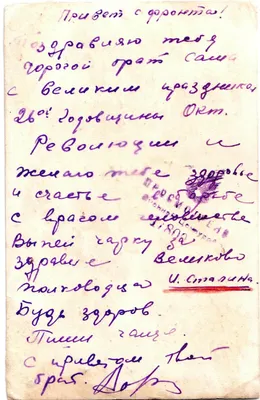 Привет с фронта!
Здравляю тебя
дорогой брат Саша
с великим праздником
26ой годовщины Окт.
Революции и
желаю тебе здоровье
и счастье
с врагом
Выпей чарку за
здравие Великово
полководца И. Сталина.
Будь здоров.
Пиши чаще.
С приветом твой
брат.